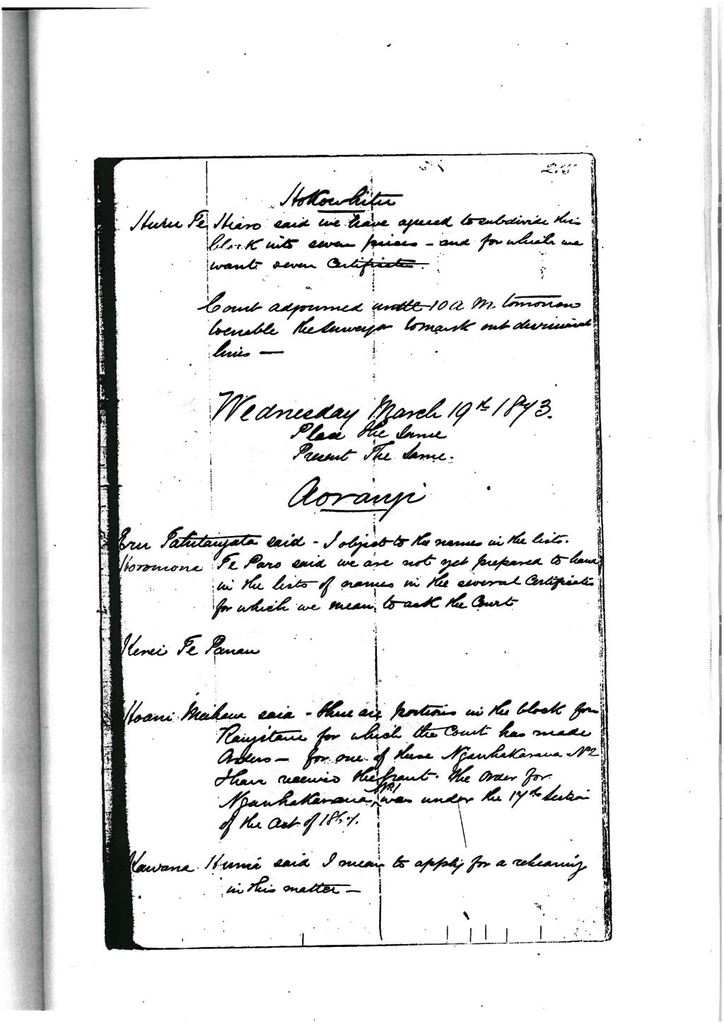 215
Hokowhitu
Huru Te Hiaro said we have agreed to subdivide this
block into seven pieces – and for which we
want seven Certificates.
Court adjourned until 10 a m tomorrow
to enable the surveyor to mark out divisional
lines —
Wednesday March 19th 1873.
Place The Same
Present The Same.
Aorangi
Eru Tahitangata said – I object to the names in the lists.
Horomona Te Paro said we are not yet prepared to hand
in the lists of names in the several Certificates
for which we mean to ask the Court
Kerei Te Panau
Hoani Meihana said – there are portions in the block for
Rangitane for which the Court has made
Orders – for one of these Ngawhakaraua No 2
I have received the Grant. The Order for
Ngawhakaraua No 1 was under the 17th Section
of the Act of 1867.
Kawana Hunia said I mean to apply for a rehearing
in this matter —